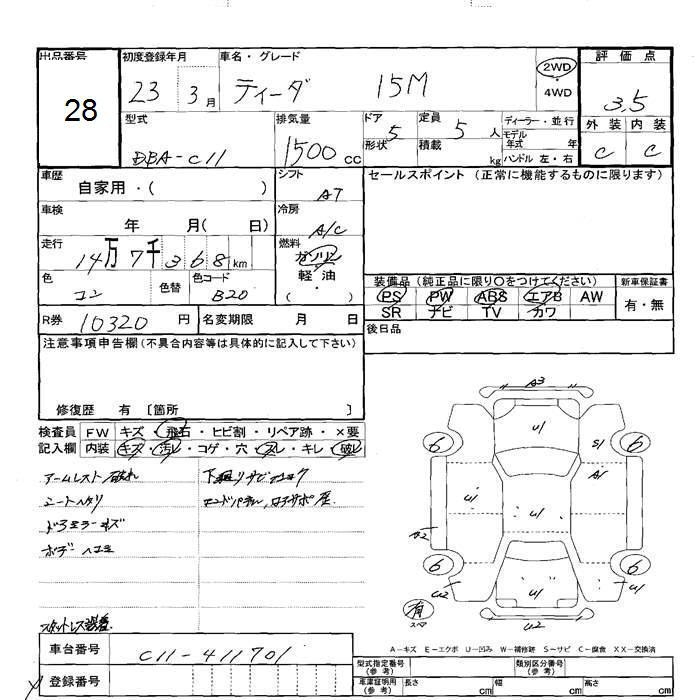 出品番号 初度登録年月 車名・グレード 2WD 評価点
28 23 3月 ティーダ 15M ・4WD 3.5
型式 排気量 ドア 5 定員 5人 ディーラー・並行 外装 内装
DBA-C11 1500cc 形状 積載 kg モデル年式 年 C C
ハンドル 左・右
車歴 自家用・( ) シフト AT セールスポイント(正常に機能するものに限ります)
車検 年 月( 日) 冷房 A/C
走行 14万7千368km 燃料 ガソリン
軽・油
( )
色 コン 色替 色コード B20
装備品(純正品に限り○をつけてください) 新車保証書
PS PW ABS エアB AW 有・無
SR ナビ TV カワ
R券 10320円 名変期限 月 日 後日品
注意事項申告欄(不具合内容等は具体的に記入して下さい)
修復歴 有 〔箇所 〕
検査員 FW キズ・飛石・ヒビ割・リペア跡・×要
記入欄 内装 キズ・汚レ・コゲ・穴・スレ・キレ・破レ
アームレスト破れ 下廻りサビ
シートヘタリ
ドアミラーキズ
ボデーヘコミ
スタットレス装着
A3
U1
6 S1 6
A1
U1 U1 U1
A2
6 6
U2 U1 U1
有 スペア U2
A-キズ E-エクボ U-凹み W-補修跡 S-サビ C-腐食 XX-交換済
車台番号 C11-411701
型式指定番号(参考) 類別区分番号(参考)
登録番号 車庫証明用(参考) 長さ cm 幅 cm 高さ cm